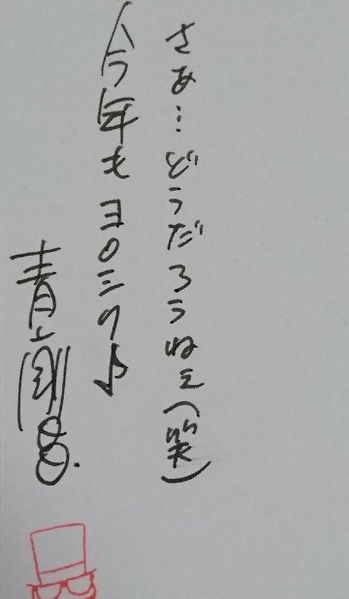 さあ…どうだろうねぇ(笑)
今年もヨロシク♪
青山剛昌